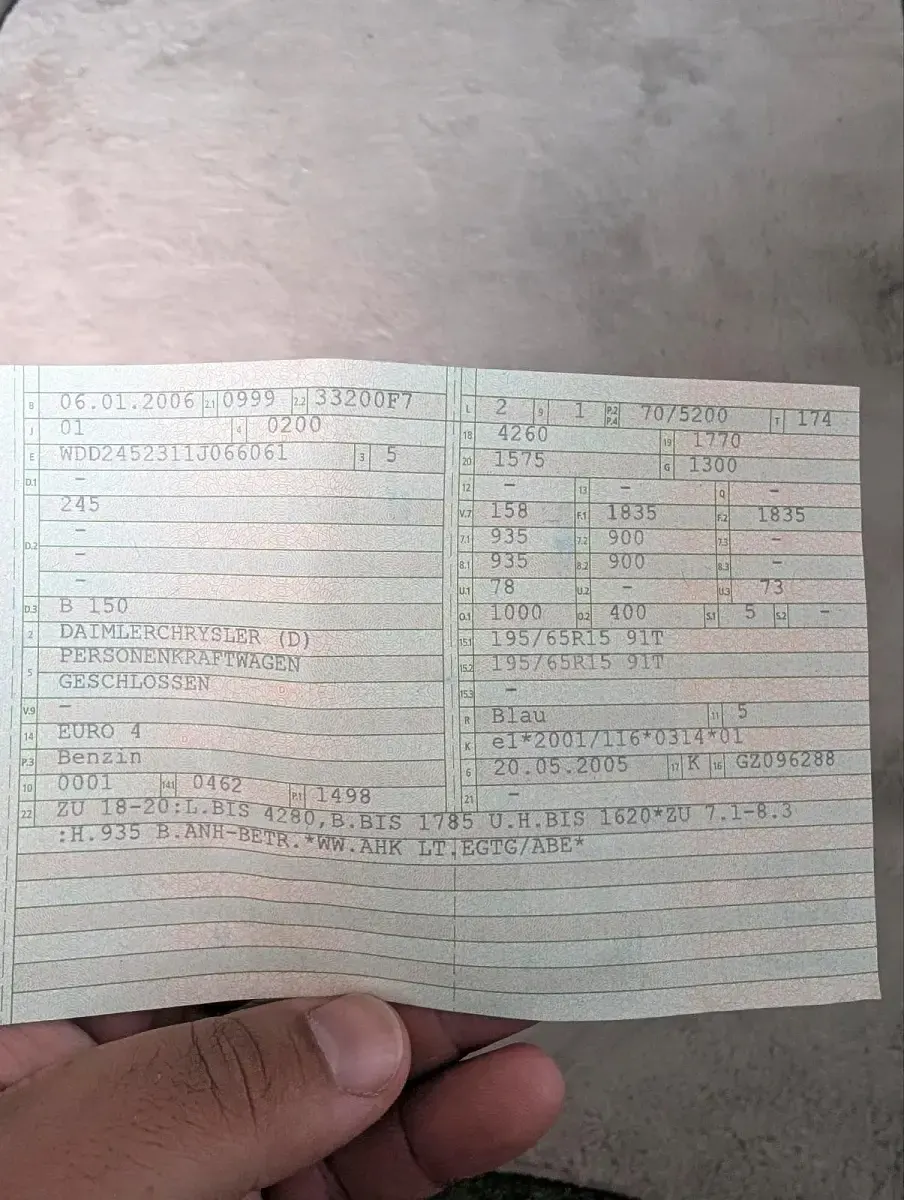 B 06.01.2006 2.1 0999 2.2 33200F7
J 01 4 0200
E WDD2452311J066061 3 5
D.1 -
245
D.2 -
-
-
D.3 B 150
2 DAIMLERCHRYSLER (D)
5 PERSONENKRAFTWAGEN
GESCHLOSSEN
V.9 -
14 EURO 4
P.3 Benzin
10 0001 14.1 0462 P.1 1498
L 2 9 1 P.2 P.4 70/5200 T 174
18 4260 19 1770
20 1575 G 1300
12 - 13 - Q -
V.7 158 F.1 1835 F.2 1835
7.1 935 7.2 900 7.3 -
8.1 935 8.2 900 8.3 -
U.1 78 U.2 - U.3 73
O.1 1000 O.2 400 S.1 5 S.2 -
15.1 195/65R15 91T
15.2 195/65R15 91T
15.3 -
R Blau 11 5
K e1*2001/116*0314*01
6 20.05.2005 17 K 16 GZ096288
21 -
22 ZU 18-20:L.BIS 4280,B.BIS 1785 U.H.BIS 1620*ZU 7.1-8.3
:H.935 B.ANH-BETR.*WW.AHK LT.EGTG/ABE*